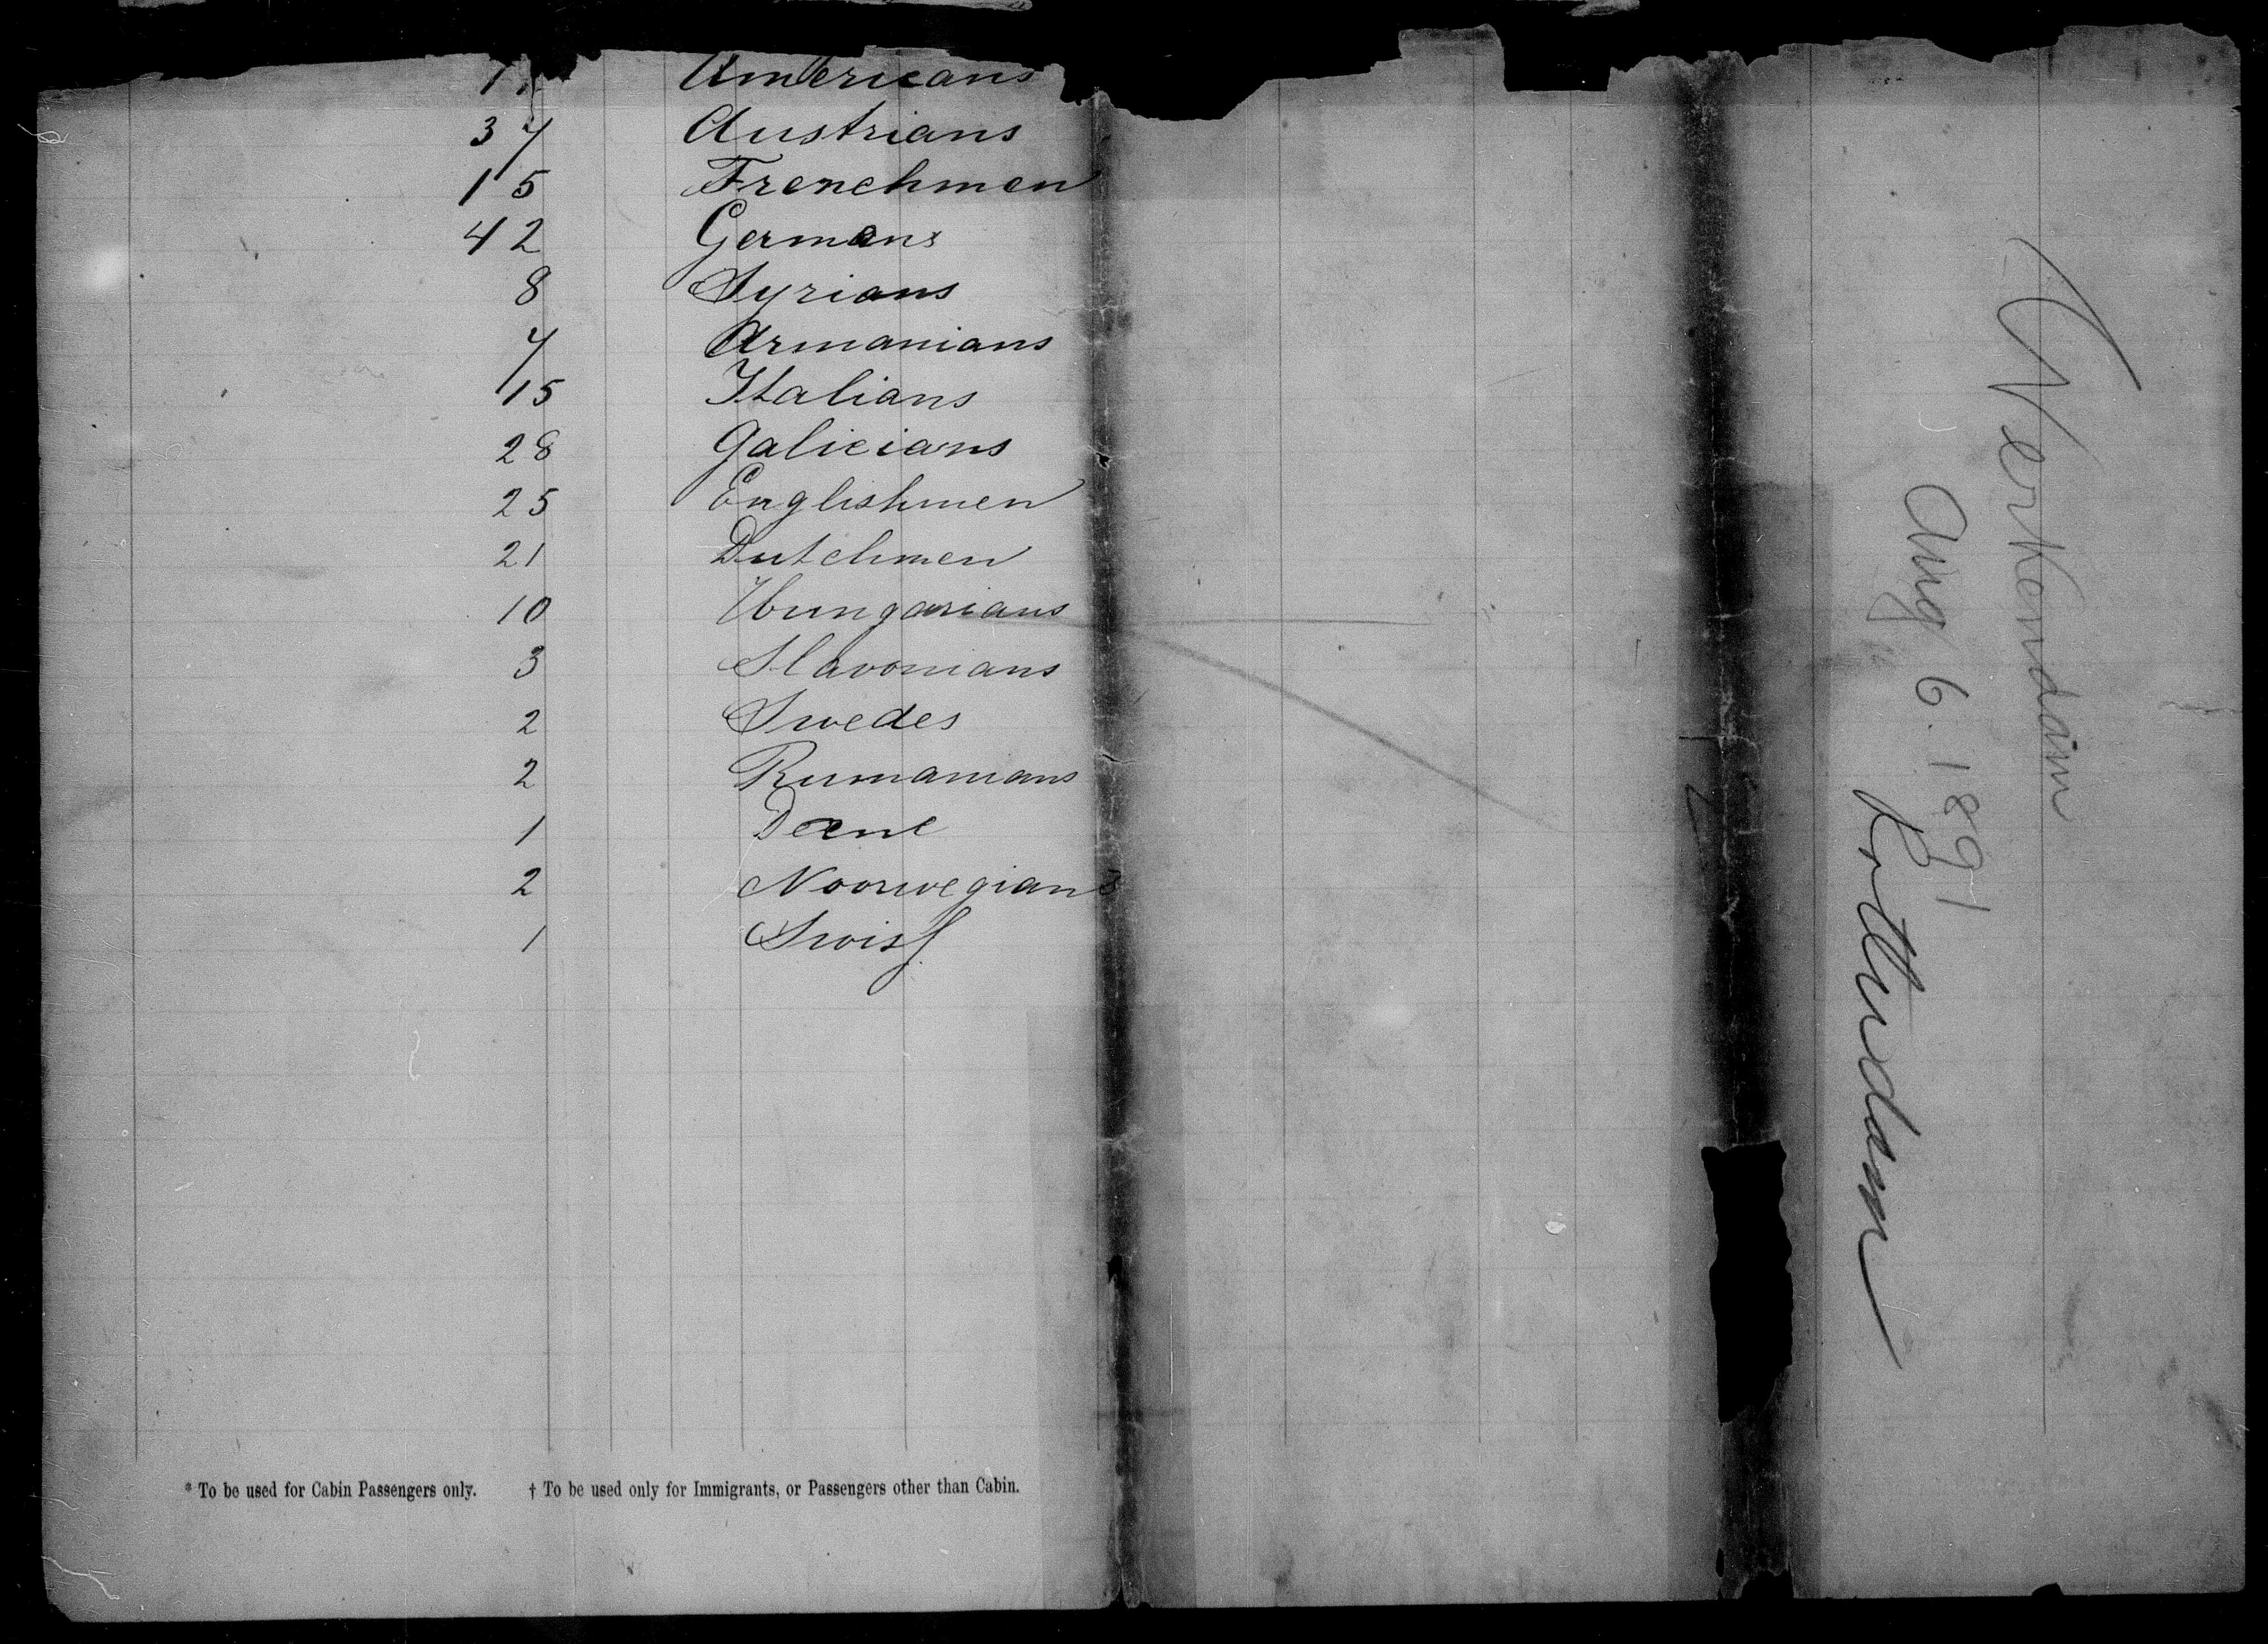 Americans
37 Austrians
15 Frenchmen
42 Germans
8 Syrians
7 Armanians
15 Italians
28 Galicians
25 Englishmen
21 Dutchmen
10 Hungarians
3 Slavonians
2 Swedes
2 Rumanians
1 Dane
2 Noorwegians
1 Swiss
* To be used for Cabin Passengers only. † To be used only for Immigrants, or Passengers other than Cabin.
Werkendam
Aug 6. 1891
Rotterdam